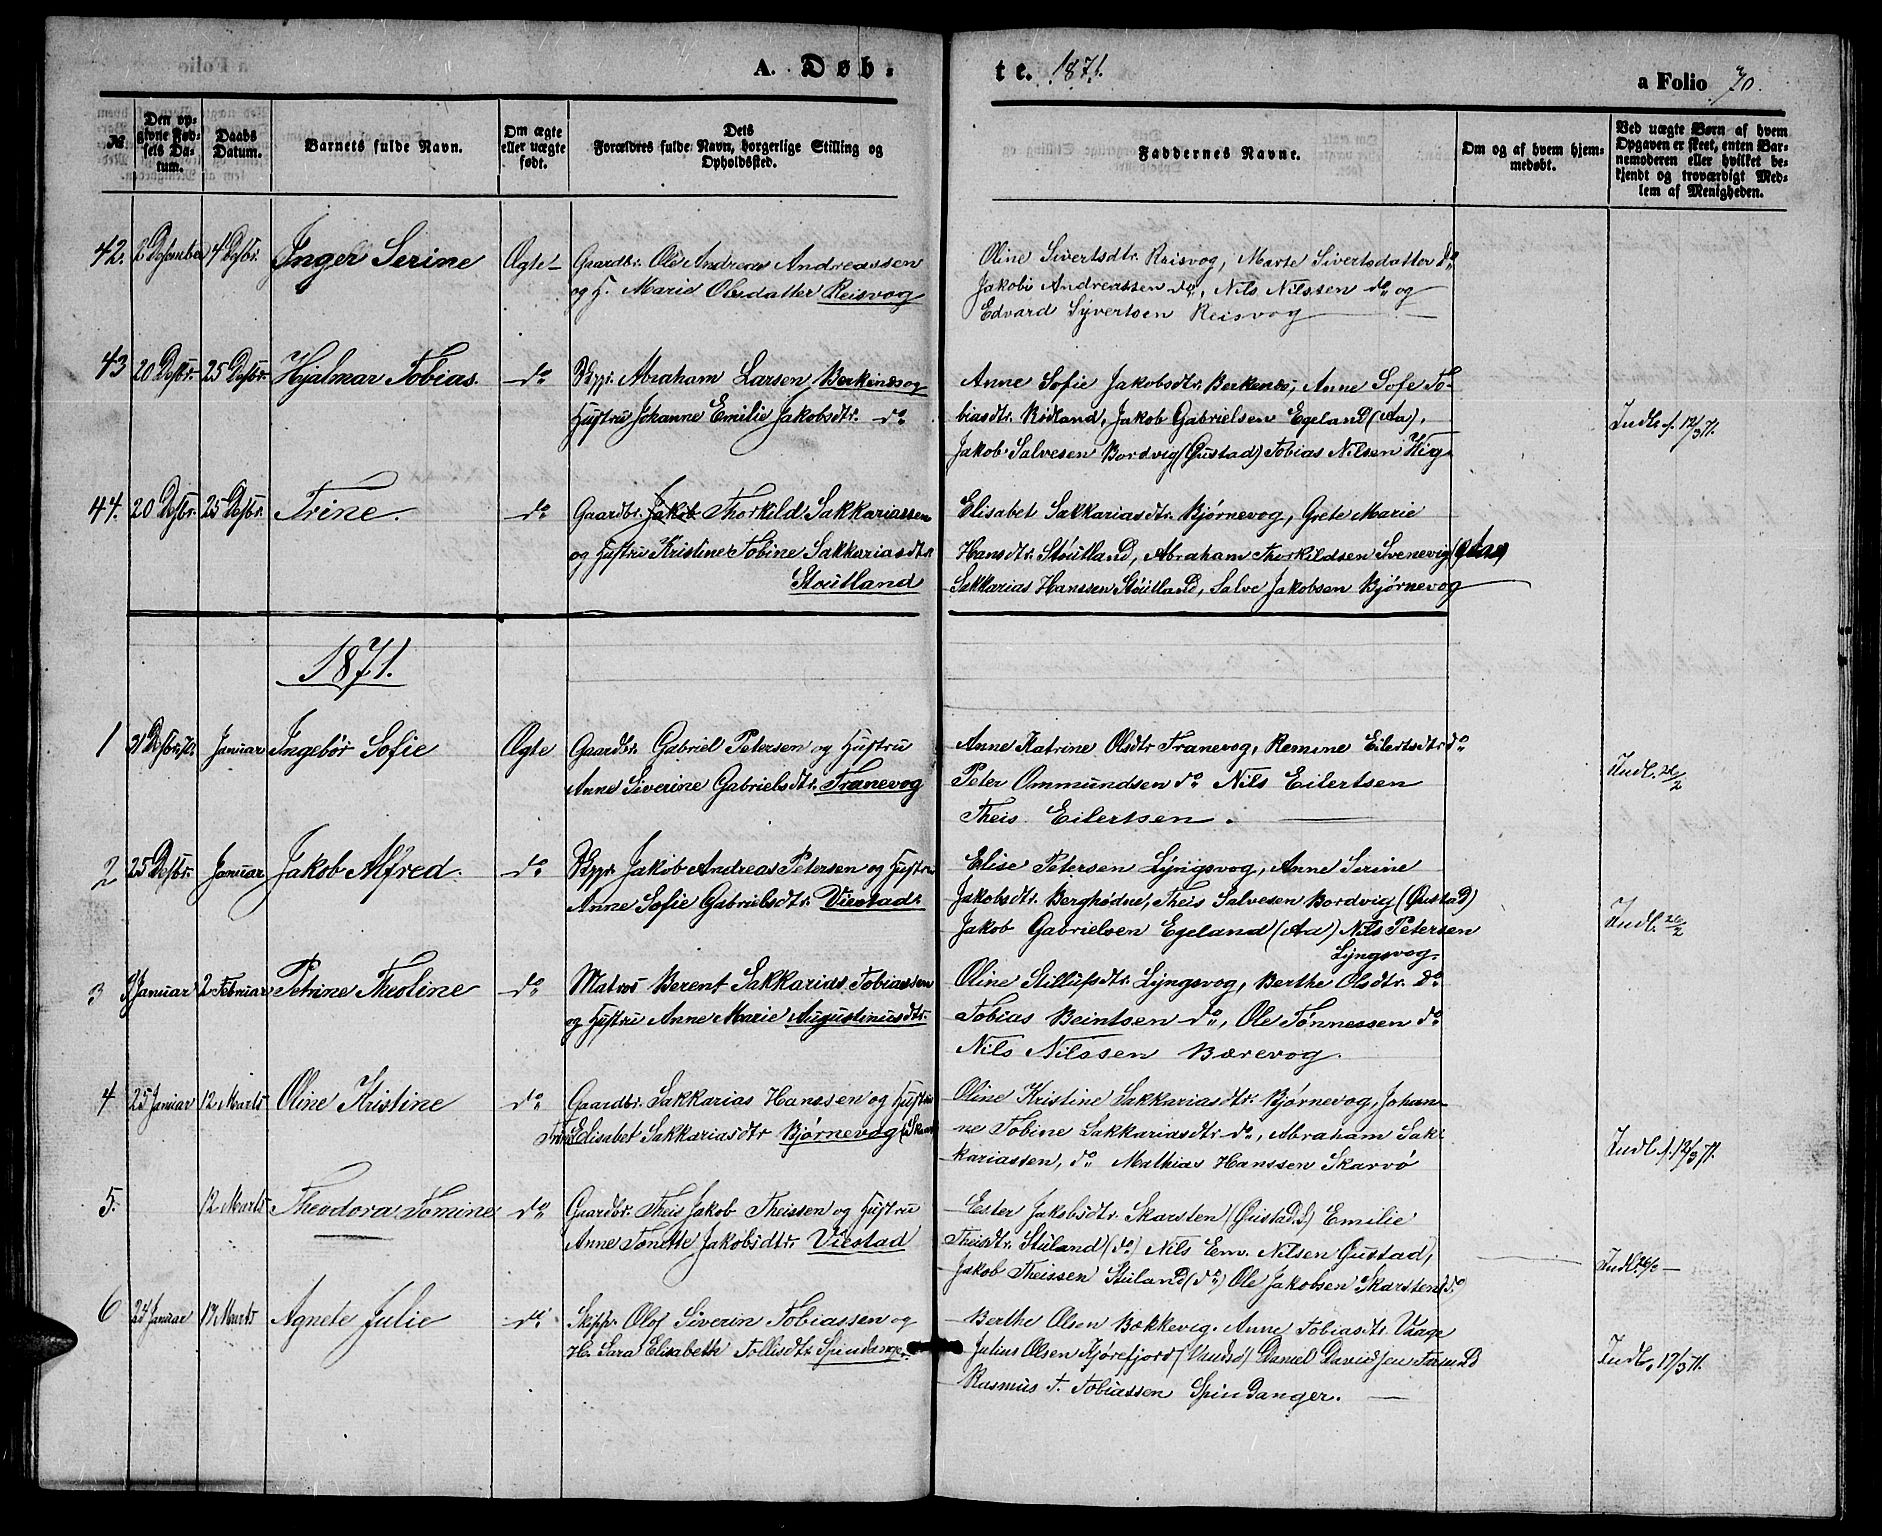 A. Døb-
te. 1871.
a Folio 70.
№
Den op-
givne Fød-
sels Da-
tum.
Daabs
Datum.
Barnets fulde Navn.
Om ægte
eller uægte
født.
Dets
Forældres fulde Navn, borgerlige Stilling og
Opholdssted.
Faddernes Navne.
Om og af hvem hjem-
medøbt.
Ved uægte Børn af hvem
Opgaven er skeet, enten Bar-
nemoderen eller hvilket be-
kjendt og troværdigt Med-
lem af Menigheden.
42. 2 Desember 4 Desbr. Inger Serine Ægte Gaardbr. Ole Andreas Andreassen
og H. Marie Olesdatter Reisvog
Oline Sivertsdtr. Reisvog, Marte Sivertsdatter do
Jakob Andreassen do, Nils Nilssen do og
Edvard Syvertsen Reisvog
43 20 Desbr. 25 Desbr. Hjalmar Tobias. do Skpr. Abraham Larsen Berkenes og
Hustru Johanne Emilie Jakobsdtr. do
Anne Sofie Jakobsdtr. Berkenes, Anne Sofe To-
biasdtr. Rødland, Jakob Gabrielsen Egeland (Aa),
Jakob Salvesen Bordvig (Øustad) Tobias Nilsen Vig
Indb. f. 12/3 71.
44. 20 Desbr. 25 Desbr. Trine. do Gaardbr. Jakob Thorkild Sakkariassen
og Hustru Kristine Tobine Sakkariasdtr.
Stoutland
Elisabet Sakkariasdtr. Bjørnevog, Grete Marie
Hansdtr. Støutland, Abraham Thorkildsen Svenevig
Sakkarias Hanssen Støutland, Salve Jakobsen Bjørnevog
1871.
1 31 Desbr. 70 Januar Ingebør Sofie Ægte Gaardbr. Gabriel Petersen og Hustru
Anne Siverine Gabrielsdtr. Tranevog
Anne Katrine Olsdtr Tranevog, Remine Eilertsdtr do
Peter Ommundsen do Nils Eilertsen
Theis Eilertsen.
Indl. 26/2
2 25 Desbr. Januar Jakob Alfred. do Skpr. Jakob Andreas Petersen og Hustru
Anne Sofie Gabrielsdtr. Viestad.
Elise Petersen Lyngsvog, Anne Serine
Jakobsdtr. Berghødne, Theis Salvesen Bordvig (Øustad)
Jakob Gabrielsen Egeland (Aa) Nils Petersen
Lyngsvog.
Indl. 26/2
3 3 Januar 2 Februar Petrine Theoline do Matros Berent Sakkarias Tobiassen
og Hustru Anne Marie Augustinusdtr.
Oline Stillufsdtr. Lyngsvog, Berthe Olsdtr. do
Tobias Beintsen do, Ole Tønnessen do
Nils Nilssen Bærevog.
4 25 Januar 12 Marts Oline Kristine do Gaardbr. Sakkarias Hanssen og Hustru
Trine Elisabet Sakkariasdtr Bjørnevog
Oline Kristine Sakkariasdtr. Bjørnevog, Johan-
ne Tobine Sakkariasdtr do, Abraham Sak-
kariassen, do Mathias Hanssen Skarvø
Indl. f. 12/3 71.
5. 12 Marts Theodora Tomine do Gaardbr. Theis Jakob Theissen og Hustru
Anne Tonette Jakobsdtr. Viestad
Ester Jakobsdtr. Skarsten (Øustads) Emilie
Theisdtr. Stuland (do) Nils Em. Nilsen Øustad,
Jakob Theissen Stuland (do) Ole Jakobsen Skarsten (do)
Indl. 26/3
6 24 Januar 17 Marts Agnete Julie do Skipp. Olof Siverin Tobiassen og
H. Sara Elisabeth Tollisdtr. Spindanger.
Berthe Olsen Bækkevig. Anne Tobiasdtr. Vaage
Julius Olsen Kjørefjord (Vandsø) Daniel Davidsen Farsund
Rasmus T. Tobiassen Spindanger.
Indb. 17/3 71.